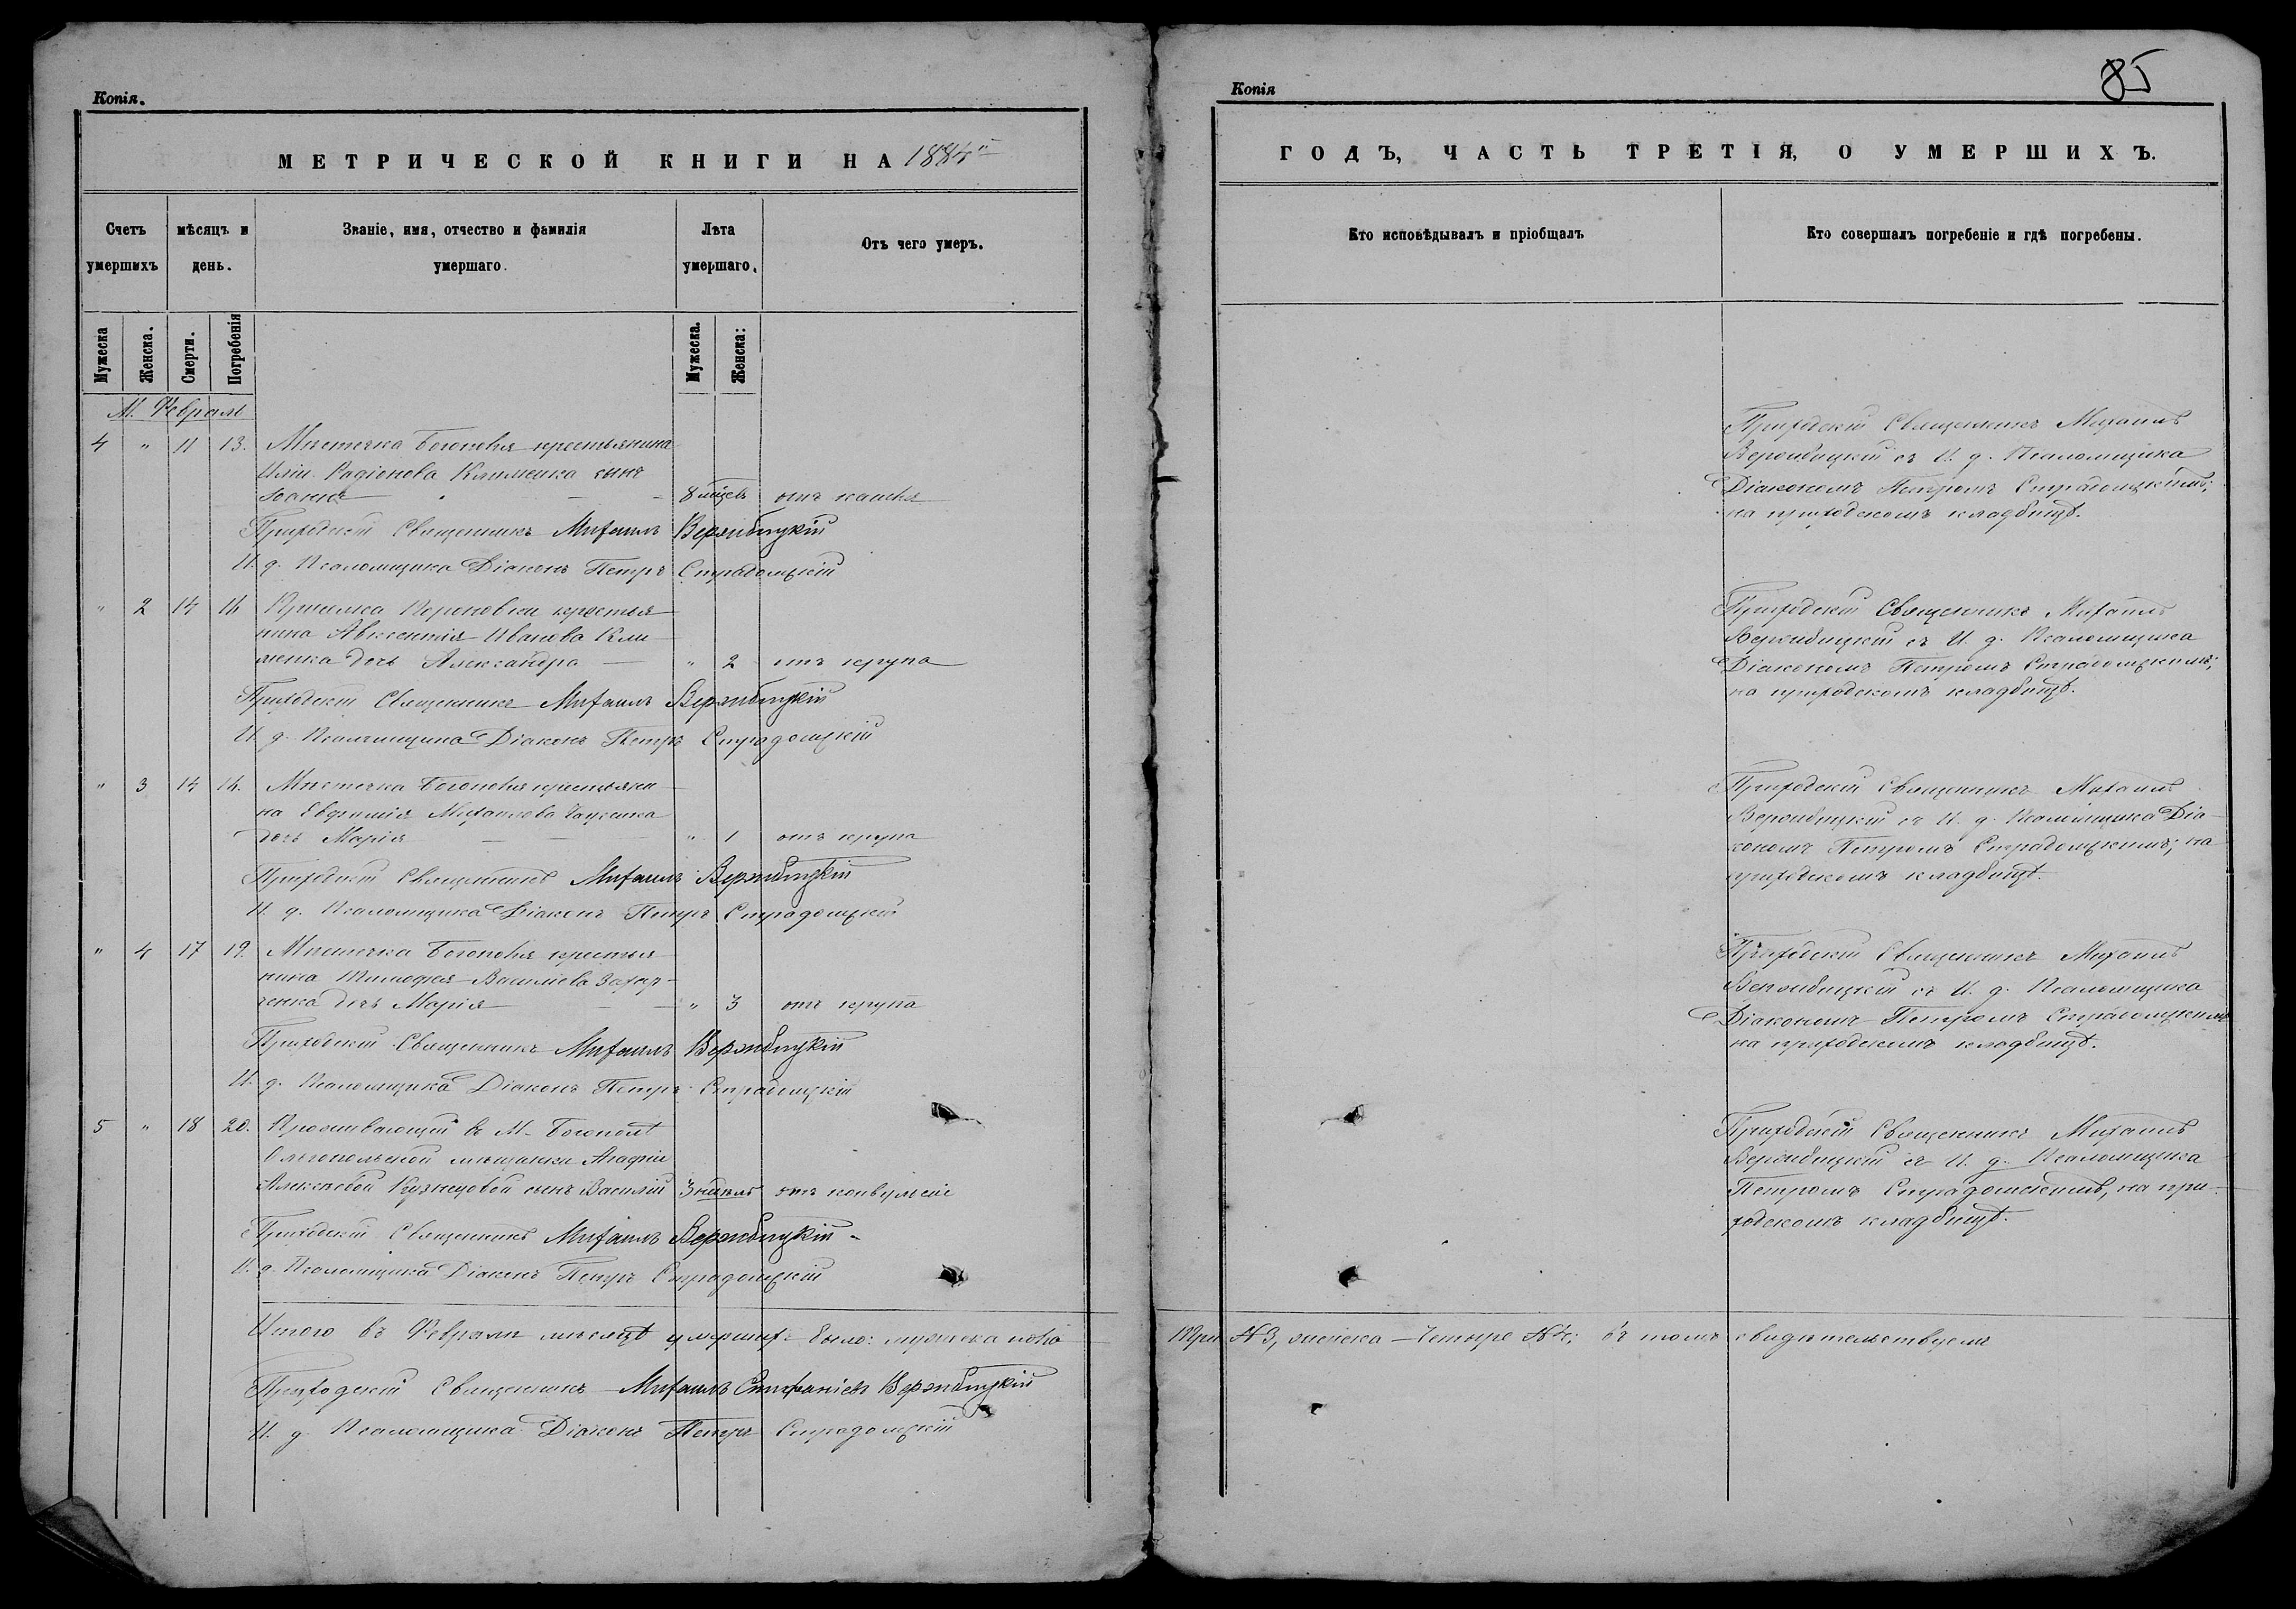 Копія.
МЕТРИЧЕСКОЙ КНИГИ НА 1884й
Счетъ умершихъ
мѣсяцъ и день.
Званіе, имя, отчество и фамилія умершаго.
Лѣта умершаго.
Отъ чего умеръ.
Мужеска
Женска.
Смерти.
Погребенія
Мужеска.
Женска:
М. Февраль
4 " 11 13. Мѣстечка Богополя крестьянина
Иліи Радіонова Клименка сынъ
Іоаннъ 8 мѣсяц. отъ кашля
Приходскій Священникъ Михаилъ Вержбицкій
И. д. Псаломщика Діаконъ Петръ Страдомскій
" 2 14 16 Приселка Кероновки крестья-
нина Авксентія Иванова Кли-
менка дочь Александра " 2 отъ крупа
Приходскій Священникъ Михаилъ Вержбицкій
И. д. Псаломщика Діаконъ Петръ Страдомскій
" 3 14 16. Мѣстечка Богополя крестьяни-
на Евфимія Михаилова
дочь Марія " 1 отъ крупа
Приходскій Священникъ Михаилъ Вержбицкій
И. д. Псаломщика Діаконъ Петръ Страдомскій
" 4 17 19. Мѣстечка Богополя крестья-
нина Тимофея Василіева Захар-
ченка дочь Марія " 3 отъ крупа
Приходскій Священникъ Михаилъ Вержбицкій
И. д. Псаломщика Діаконъ Петръ Страдомскій
5 " 18 20. Проживающей въ М. Богополѣ
Ольгопольской мѣщанки Агафіи
Алексѣевой Кузнецовой сынъ Василій 3 недѣль отъ конвульсіи
Приходскій Священникъ Михаилъ Вержбицкій
И. д. Псаломщика Діаконъ Петръ Страдомскій
Итого въ Февралѣ мѣсяцѣ умершихъ было: мужеска пола
Приходскій Священникъ Михаилъ Стефаніевъ Вержбицкій
И. д. Псаломщика Діаконъ Петръ Страдомскій
Копія
85
ГОДЪ, ЧАСТЬ ТРЕТІЯ, О УМЕРШИХЪ.
Кто исповѣдывалъ и пріобщалъ
Кто совершалъ погребеніе и гдѣ погребены.
Приходскій Священникъ Михаилъ
Вержбицкій съ И. д. Псаломщика
Діакономъ Петромъ Страдомскимъ;
на приходскомъ кладбищѣ.
Приходскій Священникъ Михаилъ
Вержбицкій съ И. д. Псаломщика
Діакономъ Петромъ Страдомскимъ;
на приходскомъ кладбищѣ.
Приходскій Священникъ Михаилъ
Вержбицкій съ И. д. Псаломщика Діа-
кономъ Петромъ Страдомскимъ; на
приходскомъ кладбищѣ.
Приходскій Священникъ Михаилъ
Вержбицкій съ И. д. Псаломщика
Діакономъ Петромъ Страдомскимъ
на приходскомъ кладбищѣ.
Приходскій Священникъ Михаилъ
Вержбицкій съ И. д. Псаломщика
Петромъ Страдомскимъ, на при-
ходскомъ кладбищѣ.
три № 3, женска – четыре № 4; въ томъ свидѣтельствуемъ